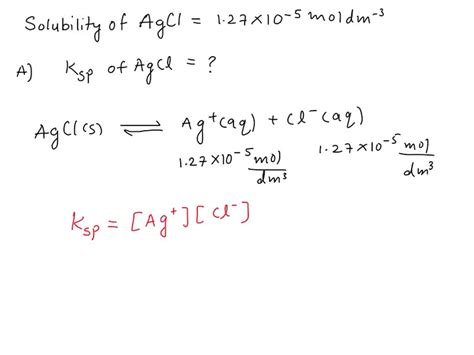 Solubility of AgCl = 1.27×10⁻⁵ moldm⁻³
A) Ksp of AgCl = ?
AgCl(s) ⇌ Ag⁺(aq) + Cl⁻(aq)
1.27×10⁻⁵ mol/dm³ 1.27×10⁻⁵ mol/dm³
Ksp = [Ag⁺][Cl⁻]